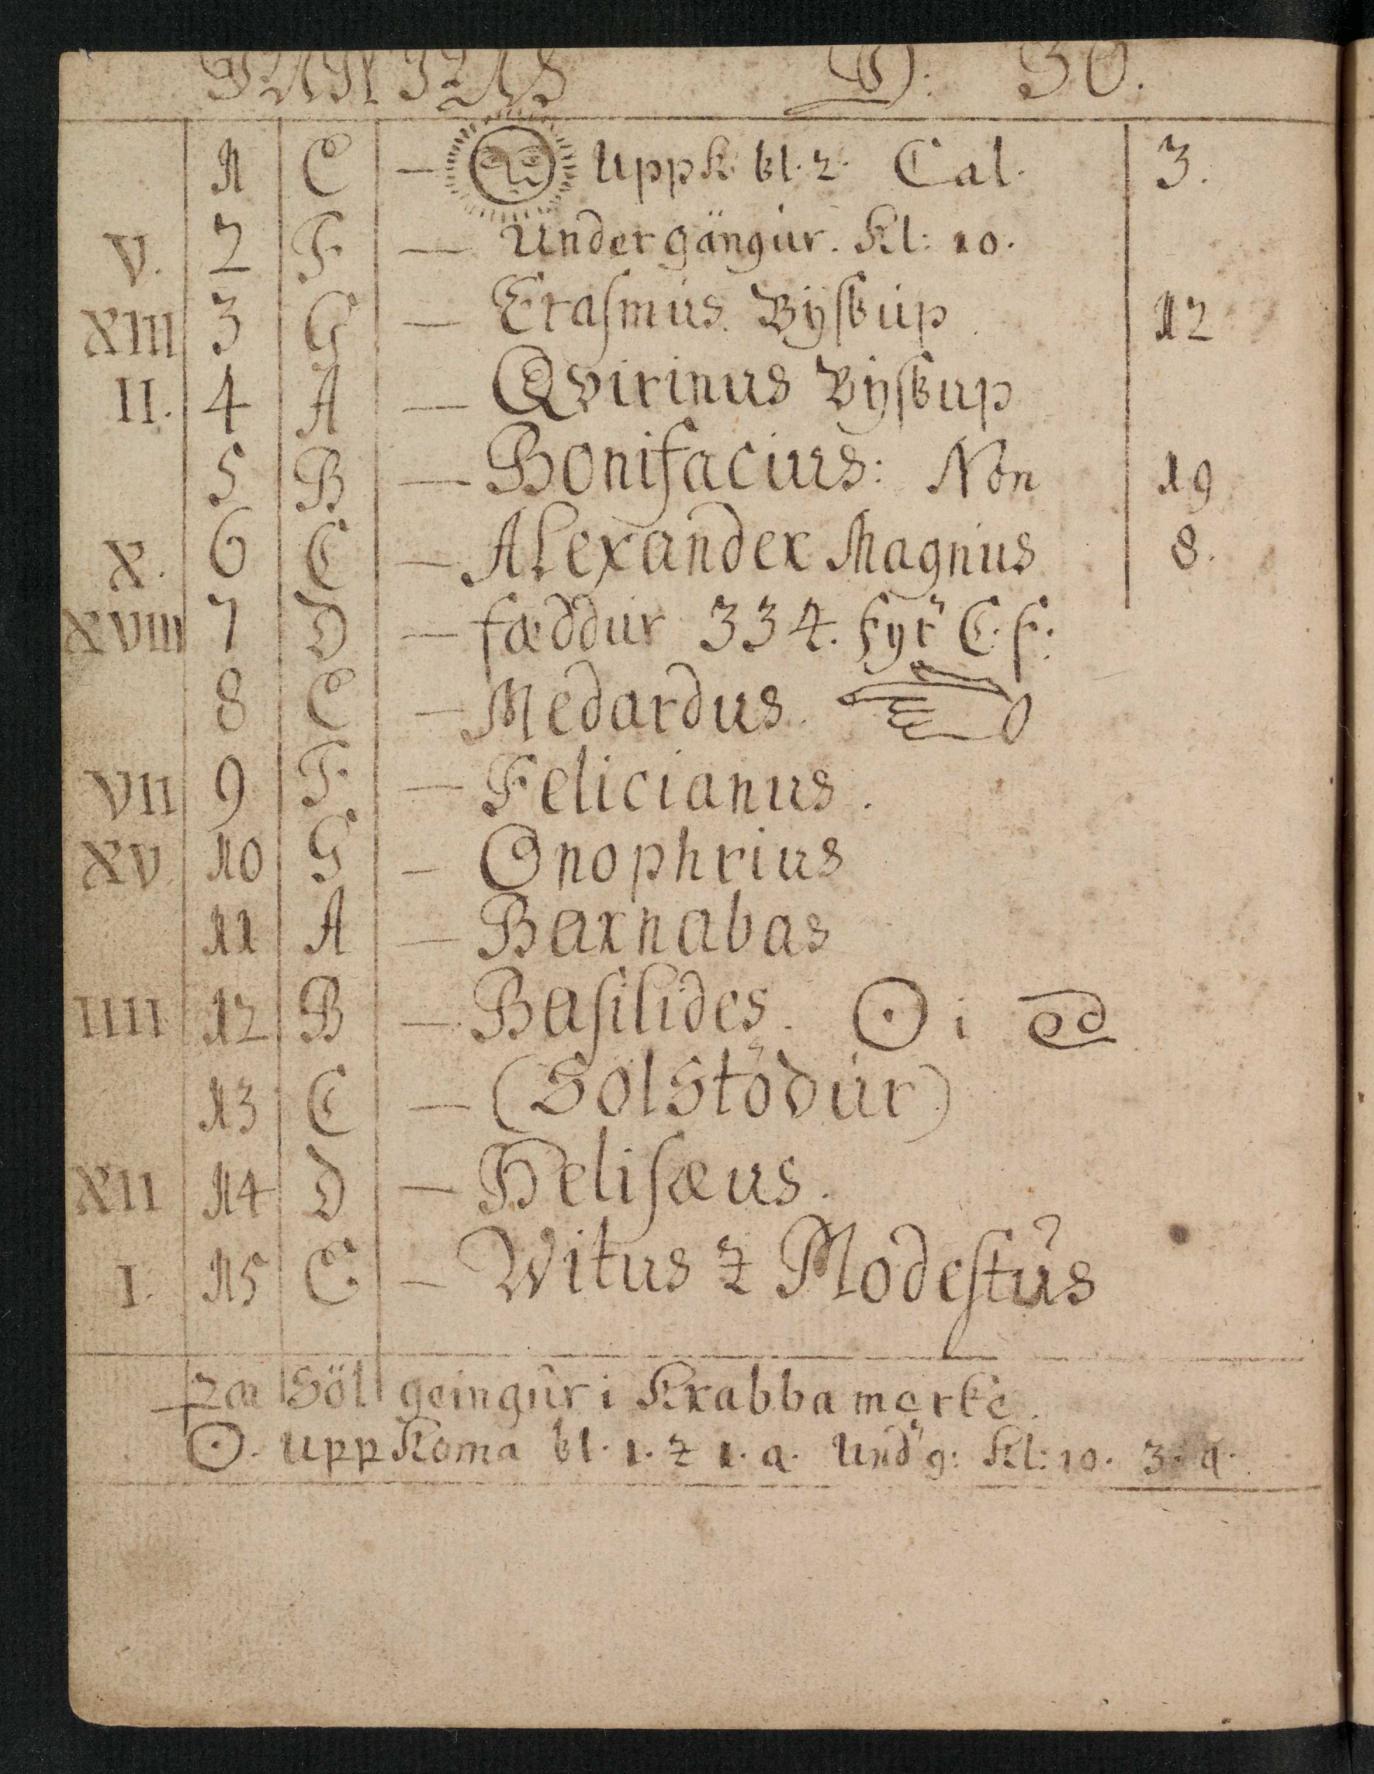 JUNIUS D: 30.
1 E — Uppk kl. 2. Cal. 3.
V. 2 F — Undergängur. Kl: 10.
XIII 3 G — Erasmus Byskup 12
II. 4 A — Qvirinus Byskup
5 B — Bonifacius: Non 19
X. 6 C — Alexander Magnus 8.
XVIII 7 D — fæddur 334. fyr C. f.
8 E — Medardus.
VII 9 F — Felicianus.
XV 10 G — Onophrius
11 A — Barnabas
IIII 12 B — Basilides. ☉ i ♋
13 C — (Sölstödur)
XII 14 D — Helisæus.
I. 15 E — Witus & Modestus
Söl geingur i Krabba merke.
☉. uppkoma kl. 1. & 1. q. Und g: Kl: 10. 3. q.